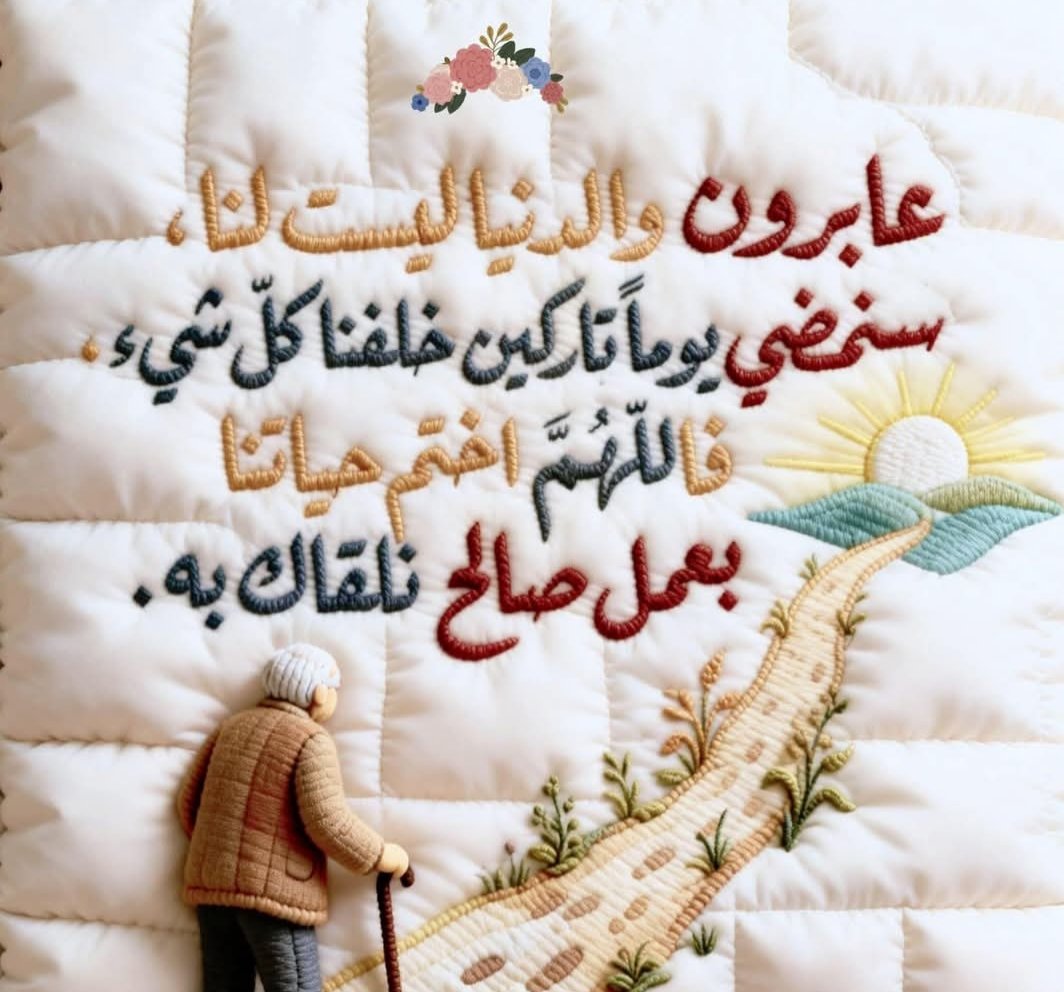 عابرون والدنيا ليست لنا،
سنمضي يوماً تاركين خلفنا كلّ شيء.
فاللّهُمَّ اختم حياتنا
بعمل صالح نلقاك به.